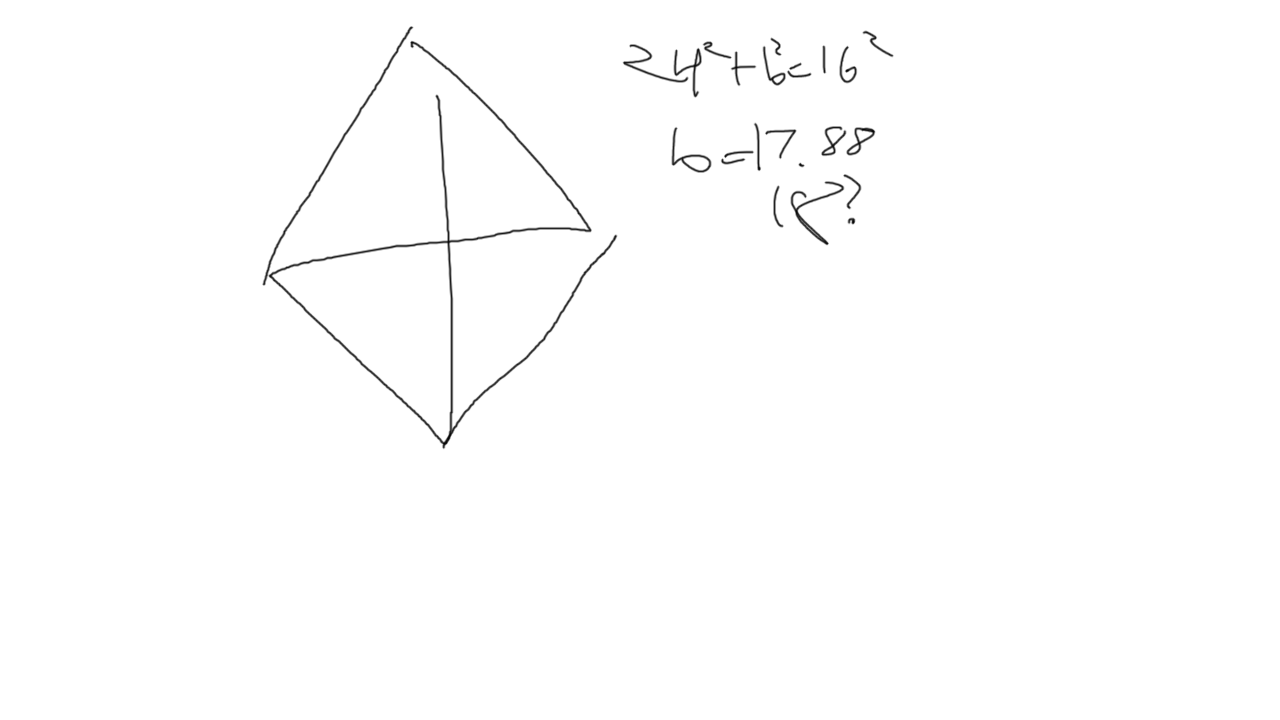 24²+b²=16²
b=17.88
18??